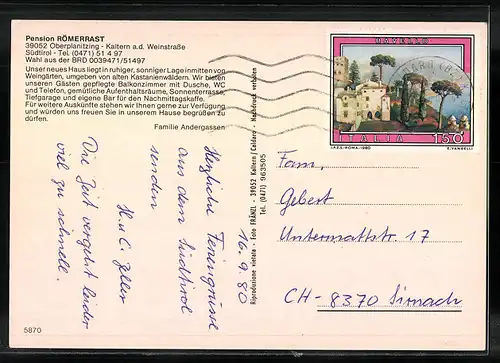 Pension RÖMERRAST
39052 Oberplanitzing - Kaltern a.d. Weinstraße
Südtirol - Tel. (0471) 51 4 97
Wahl aus der BRD 0039471/51497
Unser neues Haus liegt in ruhiger, sonniger Lage inmitten von
Weingärten, umgeben von alten Kastanienwäldern. Wir bieten
unseren Gästen gepflegte Balkonzimmer mit Dusche, WC
und Telefon, gemütliche Aufenthaltsräume, Sonnenterrasse,
Tiefgarage und eigene Bar für den Nachmittagskaffe.
Für weitere Auskünfte stehen wir Ihnen gerne zur Verfügung
und würden uns freuen Sie in unserem Hause begrüßen zu
dürfen.
Familie Andergassen
Herzliche Feriengrüsse
aus dem Südtirol
senden
H. u C.
Die Zeit vergeht leider
viel zu schnell.
16.9.80
5870
Riproduzione vietata - Foto FRÄNZL - 39052 Kaltern/Caldaro - Nachdruck verboten
Tel. (0471) 963505
RAVELLO
ITALIA 150
I.P.Z.S.-ROMA-1980
E. VANGELLI
Fam.
Gebert
Untermattstr. 17
CH-8370 Sirnach